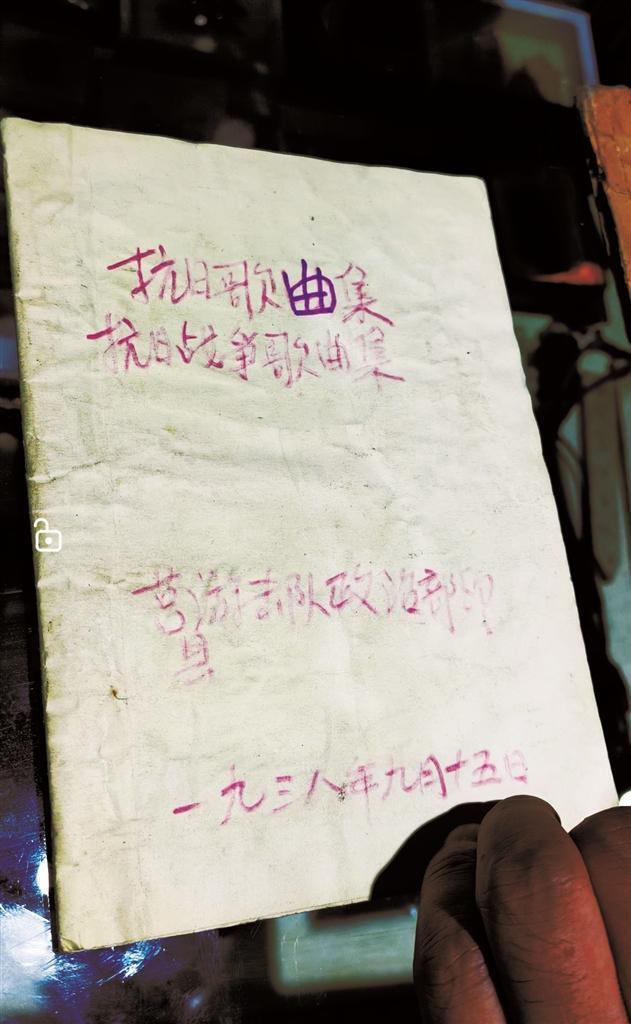 抗日歌曲集
抗日战争歌曲集
莒游击队政治部印
县
一九三八年九月十五日